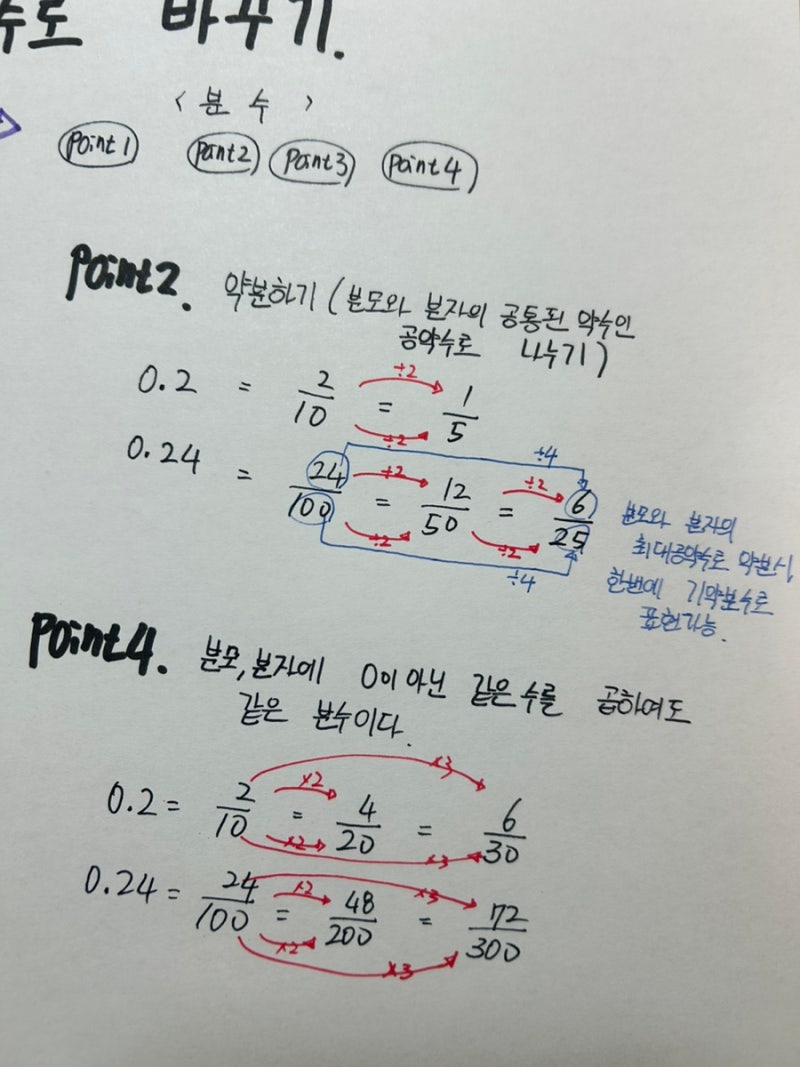 수로 바꾸기.
< 분 수 >
Point 1 Point 2 Point 3 Point 4
Point 2. 약분하기 (분모와 분자의 공통된 약수인
공약수로 나누기)
0.2 = 2/10 = 1/5
÷2
÷2
0.24 = 24/100 = 12/50 = 6/25
÷4
÷2 ÷2
÷2 ÷2
÷4
분모와 분자의
최대공약수로 약분시,
한번에 기약분수로
표현가능.
Point 4. 분모, 분자에 0이 아닌 같은 수를 곱하여도
같은 분수이다.
0.2 = 2/10 = 4/20 = 6/30
×3
×2
×2
×3
0.24 = 24/100 = 48/200 = 72/300
×2 ×3
×2
×3